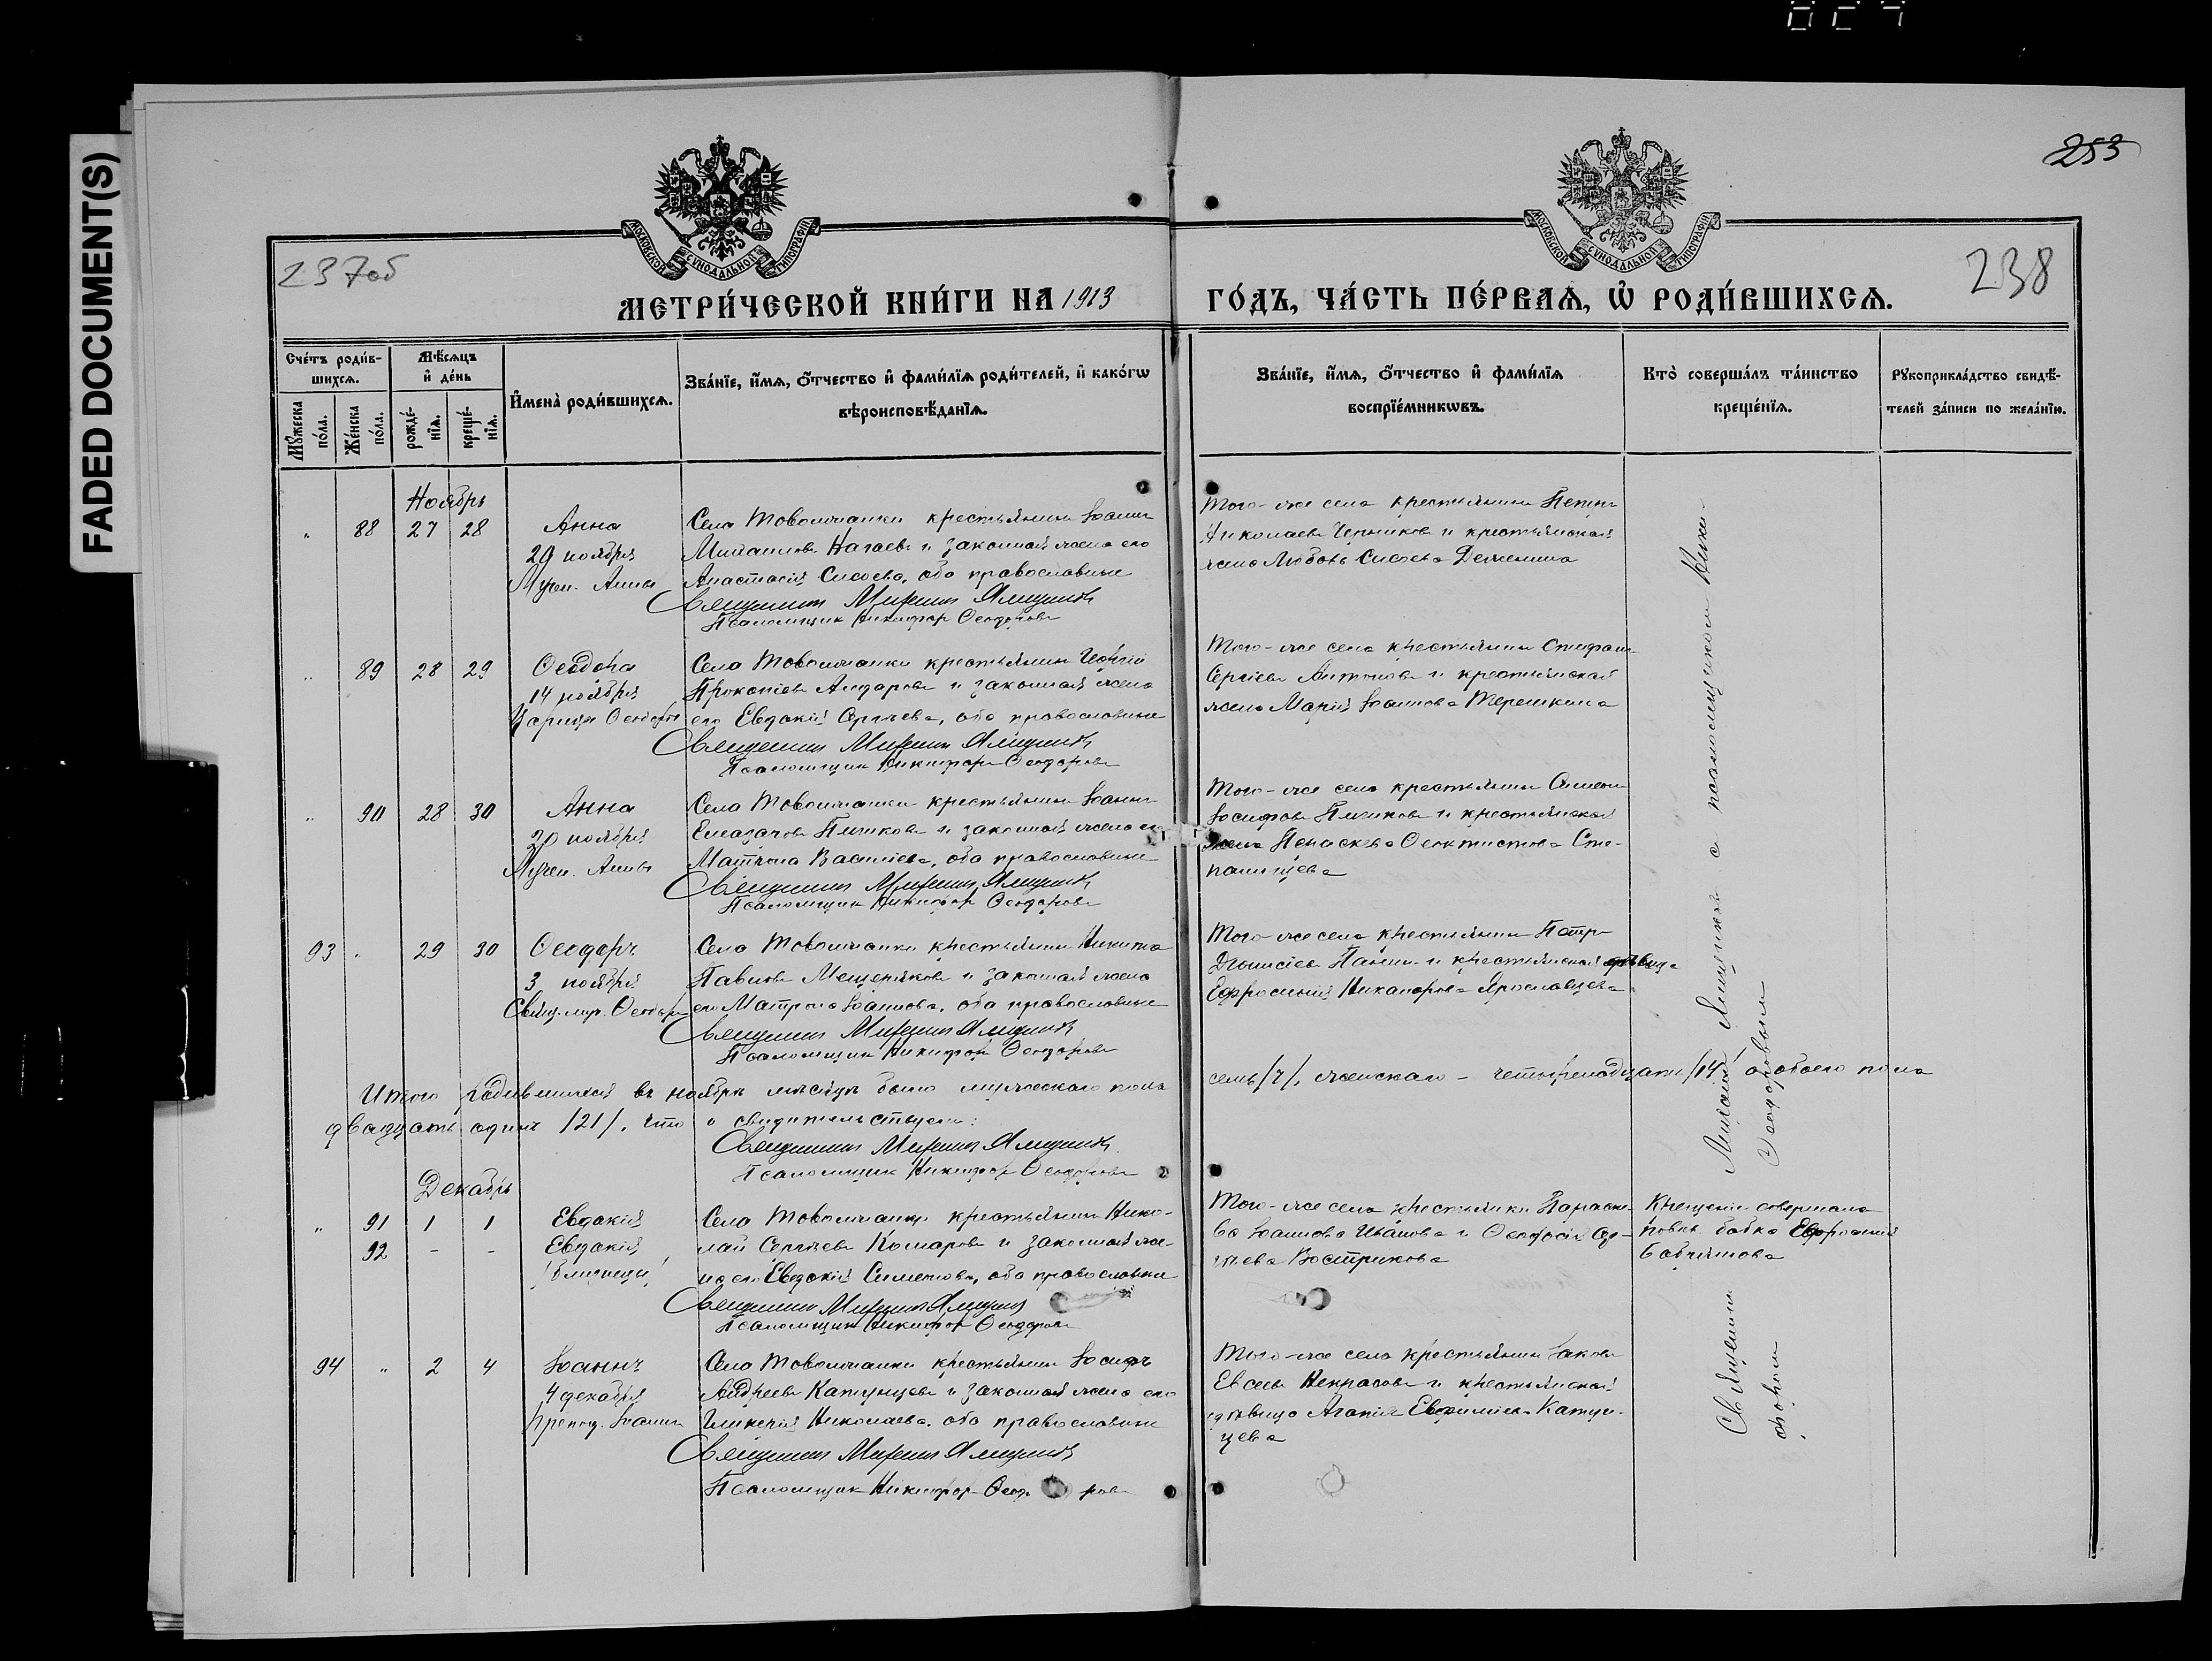 FADED DOCUMENT(S)
253
237об
238
МОСКОВСКОЙ СУНОДАЛЬНОЙ ТИПОГРАФІИ
МОСКОВСКОЙ СУНОДАЛЬНОЙ ТИПОГРАФІИ
МЕТРИ́ЧЕСКОЙ КНИ́ГИ НА 1913
ГО́ДЪ, ЧА́СТЬ ПЕ́РВАѦ, Ѡ҆ РОДИ́ВШИХСѦ.
Сче́тъ роди́в-
шихсѧ.
Мꙋ́жеска
по́ла.
Же́нска
по́ла.
Мѣ́сѧцъ
и҆ де́нь
рожде́-
нїѧ.
креще́-
нїѧ.
И҆мена̀ роди́вшихсѧ.
Зва́нїе, и҆́мѧ, ѻ҆́тчество и҆ фами́лїѧ роди́телей, и҆ како́гѡ
вѣроисповѣ́данїѧ.
Зва́нїе, и҆́мѧ, ѻ҆́тчество и҆ фами́лїѧ
воспрїе́мникѡвъ.
Кто̀ соверша́лъ та́инство
креще́нїѧ.
Рꙋкоприкла́дство свидѣ́-
телей за́писи по жела́нїю.
Ноябрь
" 88 27 28 Анна
29 ноября
Мучен. Анны
Села Товолжанки крестьянинъ Іоаннъ
Михаиловъ Нагаевъ и законная жена его
Анастасія Сисоева, оба православные
Священникъ Михаилъ
Псаломщикъ Никифоръ Ѳеодоровъ
Того-же села крестьянинъ Петръ
Николаевъ Черниковъ и крестьянская
жена Любовь Сисоева Деменина
" 89 28 29 Ѳеодора
14 ноября
Царицы Ѳеодоры
Села Товолжанки крестьянинъ Георгій
Прокопіевъ и законная жена
его Евдокія Сергіева, оба православные
Священникъ Михаилъ
Псаломщикъ Никифоръ Ѳеодоровъ
Того-же села крестьянинъ Стефанъ
Сергіевъ Антоновъ и крестьянская
жена Марія Іоаннова Терешкина
" 90 28 30 Анна
20 ноября
Мучен. Анны
Села Товолжанки крестьянинъ Іоаннъ
Елеазаровъ и законная жена его
Матрона Василіева, оба православные
Священникъ Михаилъ
Псаломщикъ Никифоръ Ѳеодоровъ
Того-же села крестьянинъ Симеонъ
Іосифовъ и крестьянская
жена Параскева Ѳеоктистова Сте-
93 " 29 30 Ѳеодоръ
3 ноября
Свящ.-муч. Ѳеодора
Села Товолжанки крестьянинъ Никита
Павловъ Мещеряковъ и законная жена
его Матрона Іоаннова, оба православные
Священникъ Михаилъ
Псаломщикъ Никифоръ Ѳеодоровъ
Того-же села крестьянинъ Петръ
Діонисіевъ Панинъ и крестьянская дѣвица
Ефросинія Никанорова Ярославцева
Итого родившихся въ ноябрѣ мѣсяцѣ было мужескаго пола
семь /7/, женскаго - четырнадцать /14/ а обоего пола
двадцать одинъ /21/, что и свидѣтельствуемъ:
Священникъ Михаилъ
Псаломщикъ Никифоръ Ѳеодоровъ
Михаилъ съ псаломщикомъ Ники-
Ѳеодоровымъ
Декабрь
" 91 1 1 Евдокія
92 - - Евдокія
/близнецы/
Села Товолжанки крестьянинъ Нико-
лай Сергіевъ Комаровъ и законная же-
на его Евдокія Симеонова, оба православные
Священникъ Михаилъ
Псаломщикъ Никифоръ Ѳеодоровъ
Того-же села крестьянки Параске-
ва Іоаннова Иванова и Ѳеодосія Сер-
гіева Вострикова
Крещеніе совершала
повив. бабка Евфросинія
94 " 2 4 Іоаннъ
4 декабря
Препод. Іоанна
Села Товолжанки крестьянинъ Іосифъ
Андреевъ Катунцевъ и законная жена его
Гликерія Николаева, оба православные
Священникъ Михаилъ
Псаломщикъ Никифоръ Ѳеодоровъ
Того-же села крестьянинъ Іаковъ
Евсеевъ Некрасовъ и крестьянская
дѣвица Агапія Евфиміева Катун-
цева
Священникъ